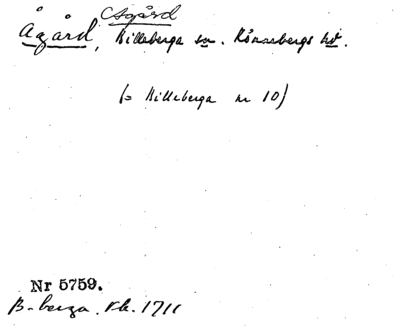 Asgård
Ågård, Billeberga sn. Rönnebergs hd.
(= Billeberga nr 10)
Nr 5759.
B-berga. Kb. 1711